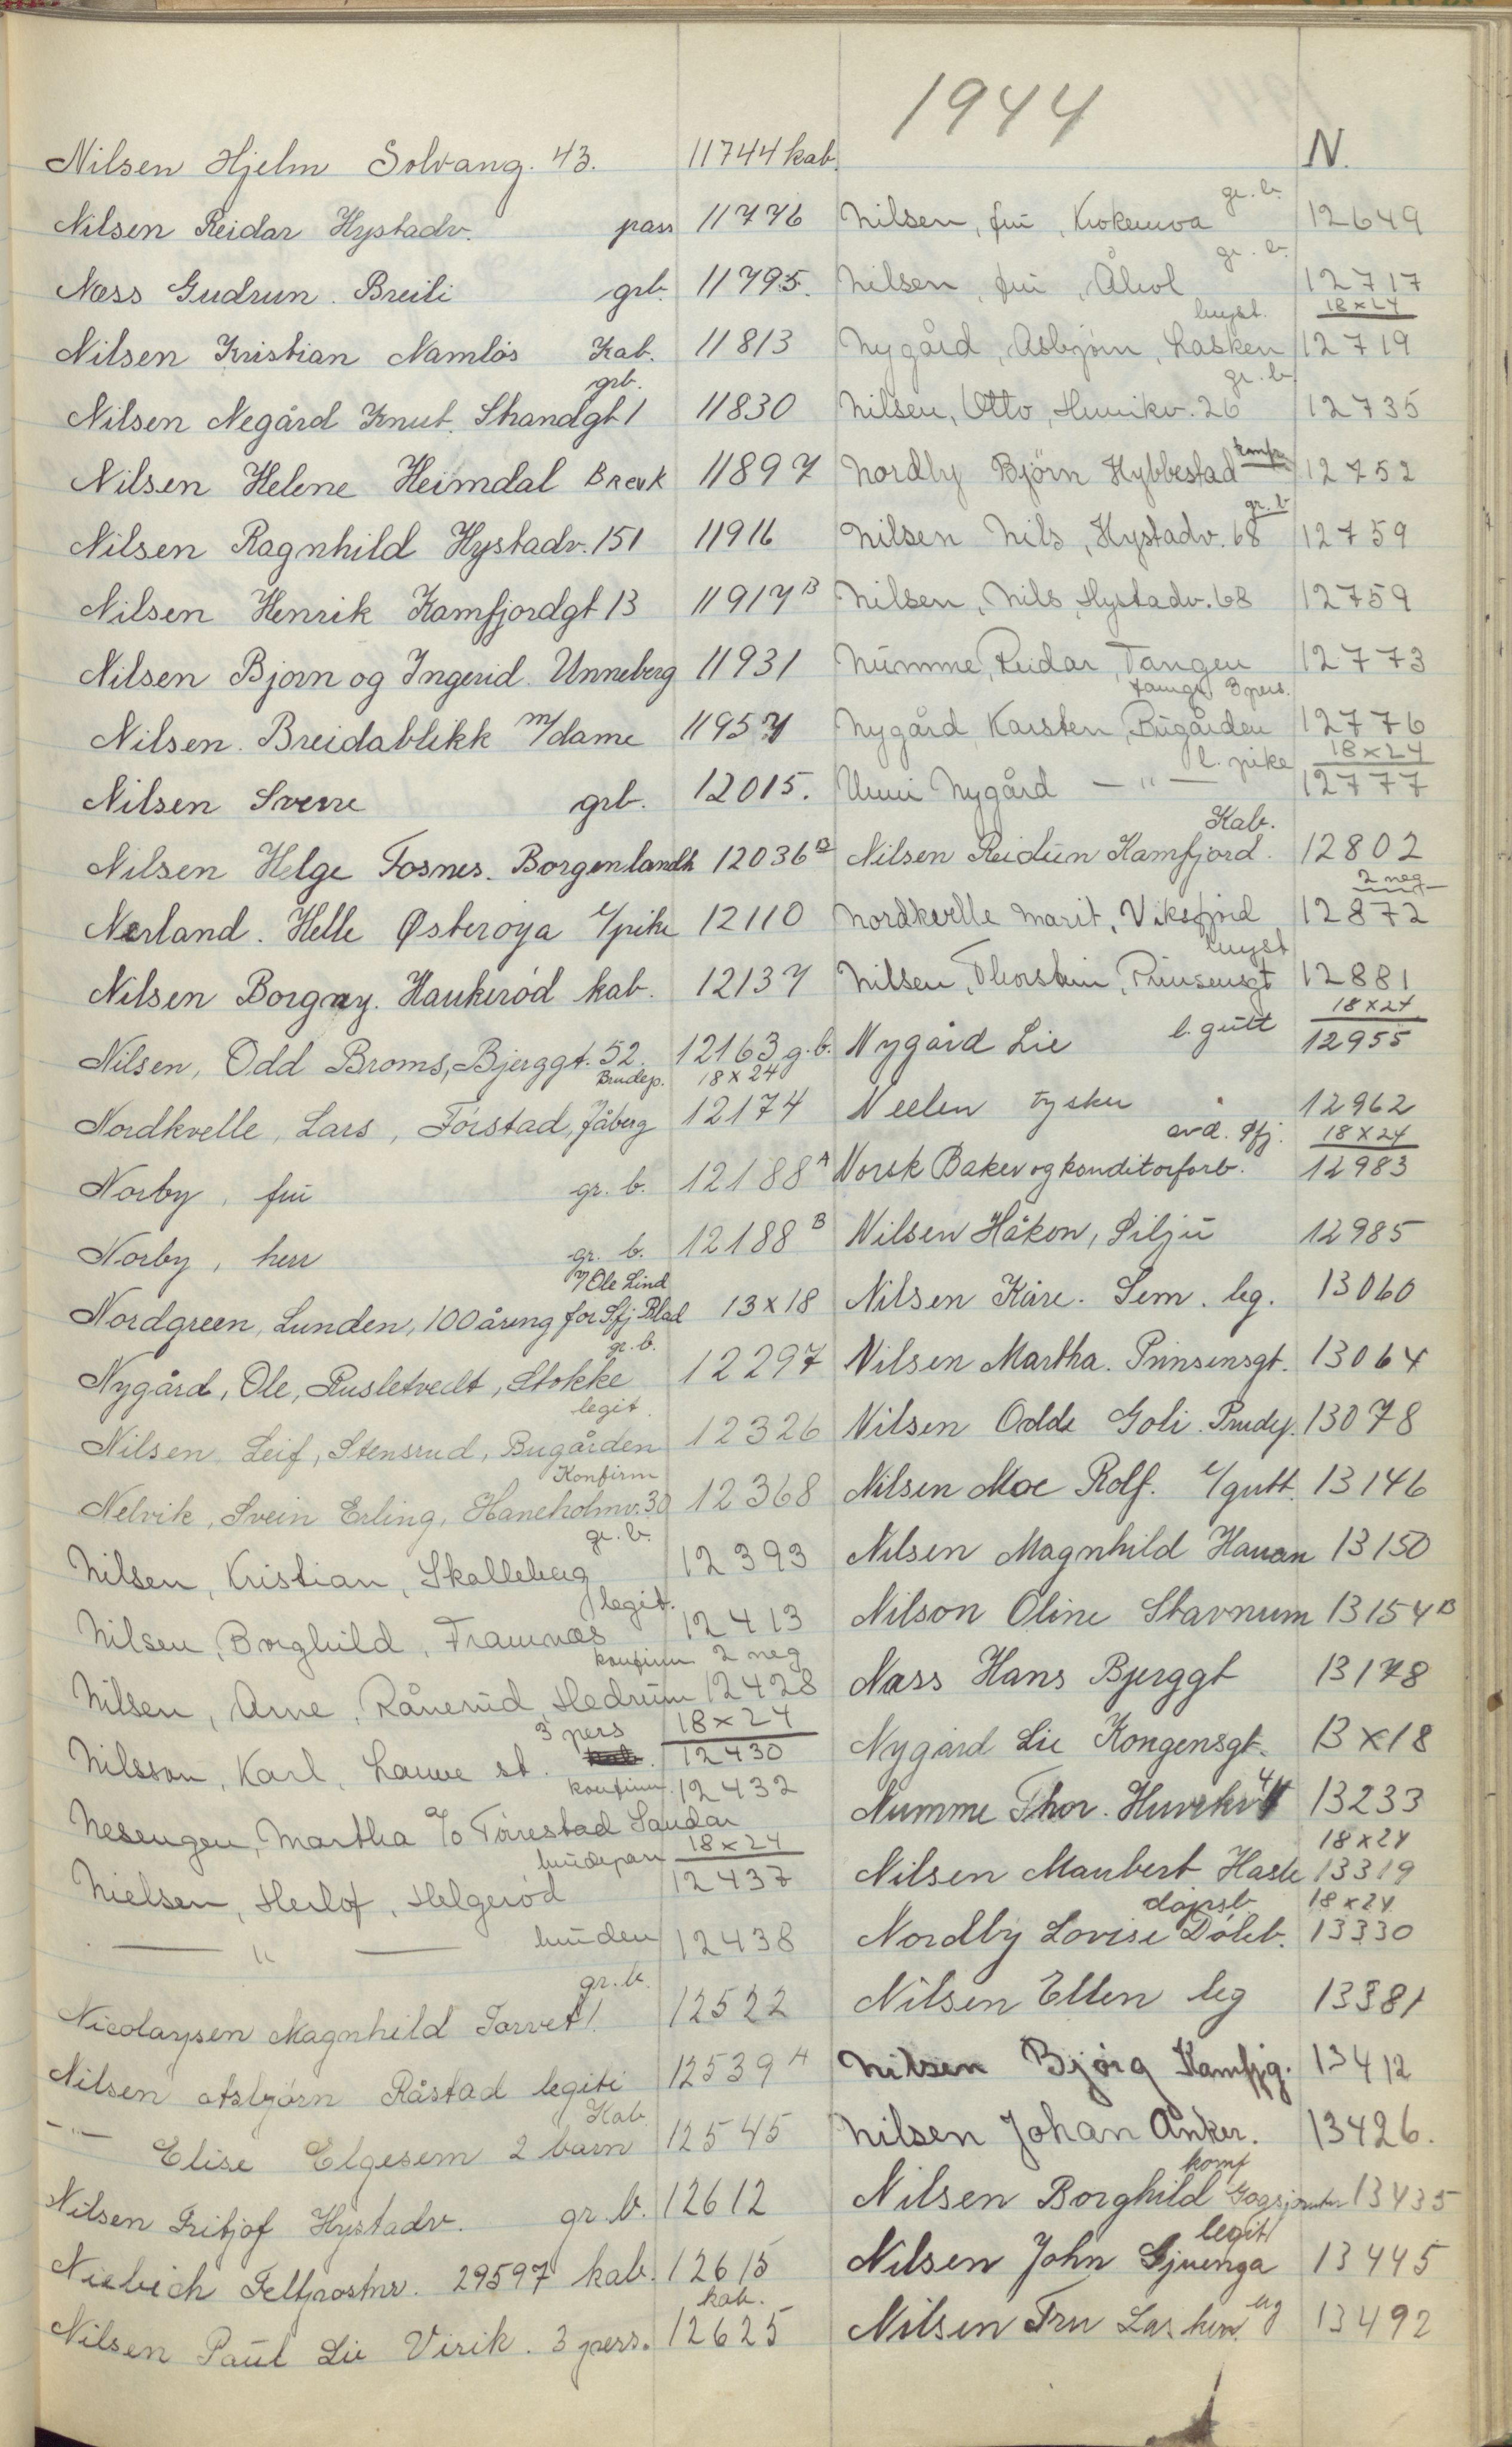 1944
N.
Nilsen Hjelm Solvang. 43. 11744 kab.
Nilsen Reidar Hystadv. pass 11776
Næss Gudrun. Breili grb. 11795.
Nilsen Kristian Namløs Kab. 11813
grb.
Nilsen Negård Knut. Strandgt 1 11830
Nilsen Helene Heimdal Brevk 11897
Nilsen Ragnhild Hystadv. 151 11916
Nilsen Henrik Kamfjordgt 13 11917 B
Nilsen Bjørn og Ingerid Unneberg 11931
Nilsen. Breidablikk m/dame 11957
Nilsen Sverre grb. 12015.
Nilsen Helge Fosnes. Borgenlandh 12036 B
Nerland. Helle Østerøya l/pike 12110
Nilsen Borgny. Haukerød kab. 12137
Nilsen, Odd Broms, Bjerggt. 52. 12163 g.b.
Brudep. 18 x 24
Nordkvelle, Lars, Førstad, Jåberg 12174
Norby, frü gr. b. 12188 A
Norby, herr gr. b. 12188 B
v/ Ole Lind
Nordgreen, Lunden, 100 åring for Sfj. Blad 13 x 18
gr. b.
Nygård, Ole, Rusletvedt, Stokke 12297
legit.
Nilsen Leif, Stensrud, Bugården 12326
Konfirm
Nelvik, Svein Erling, Haneholmv. 30 12368
gr. b.
Nilsen, Kristian, Skalleberg 12393
legit.
Nilsen, Borghild, Framnæs 12413
konfirm 2 neg
Nilsen, Arne, Rånerüd, Hedrüm 12428
3 pers 18 x 24
Nilsson, Karl, Lauve st. 12430
konfirm. 12432
Nesengen, Martha c/o Tørrestad Sandar
brüdepar 18 x 24
Nielsen, Herlof, Helgerød 12437
— " — brüden 12438
gr. b.
Nicolaysen Magnhild Torvet 1. 12522
Nilsen Asbjørn Råstad legiti 12539 A
Kab.
— " — Elise Elgesem 2 barn 12545
Nilsen Fritjof Hystadv. gr. b. 12612
Niebich Feltpostnr. 29597 kab. 12615
kab.
Nilsen Paül Lie Virik. 3 pers. 12625
gr. b.
Nilsen, frü, Krokemoa 12649
gr. b.
Nilsen, frü, Åbol 12717
bryst. 18 x 24
Nygård, Asbjørn, Lasken 12719
gr. b.
Nilsen, Otto, Hunikv. 26 12735
konf
Nordby Bjørn Hybbestad 12752
gr. b
Nilsen Nils, Hystadv. 68 12759
Nilsen, Nils, Hystadv. 68 12759
Nümme, Reidar, Tangen 12773
3 pers.
Nygård, Karsten, Bügården 12776
l. pike 18 x 24
Unni Nygård — " — 12777
Kab.
Nilsen Reidün Kamfjord. 12802
2 neg
Nordkvelle Marit, Viksfjord 12872
bryst
Nilsen, Thorstein, Prinsensgt 12881
l. gütt 18 x 24
Nygård Lie 12955
Neelen tysker 12962
avd. Sfj. 18 x 24
Norsk Baker og konditorforb. 12983
Nilsen Håkon, Siljü 12985
Nilsen Kåre. Sem. leg. 13060
Nilsen Martha. Prinsensgt. 13064
Nilsen Odde Goli. Prudej. 13078
Nilsen Moe Rolf. l/gutt. 13146
Nilsen Magnhild Hauan 13150
Nilson Oline Stavnum 13154 B
Næss Hans Bjerggt 13178
Nygård Lie Kongensgt. 13 x 18
Numme Thor. Huvikv 44 13233
18 x 24
Nilsen Maubert Hasle 13319
dåpsb. 18 x 24
Nordby Lovise Døleb. 13330
Nilsen Ellen leg 13381
Nilsen Bjørg Kamfjg. 13412
Nilsen Johan Anker. 13426.
konf
Nilsen Borghild Gogsjordet 13435
legit
Nilsen John Gjuenga 13445
Nilsen Fru Lasken. leg 13492